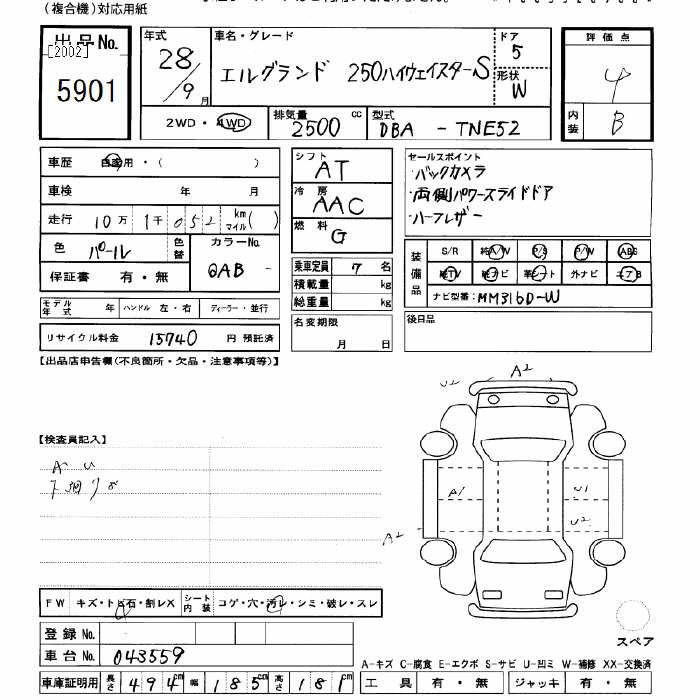 (複合機)対応用紙
出品No.
[2002]
5901
年式 28/9月
車名・グレード エルグランド 250ハイウェイスターS
ドア 5
形状 W
評価点 4
内装 B
2WD・4WD
排気量 2500cc
型式 DBA - TNE52
車歴 自家用・( )
車検 年 月
走行 10万1千052 km マイル( )
色 パール 色替
カラーNo. QAB -
保証書 有・無
モデル年式 年 ハンドル 左・右 ディーラー・並行
リサイクル料金 15740 円 預託済
シフト AT
冷房 AAC
燃料 G
乗車定員 7名
積載量 kg
総重量 kg
名変期限 月 日
セールスポイント
・バックカメラ
・両側パワースライドドア
・ハーフレザー
装備品
S/R 純A/W P/S P/W ABS
純TV 純ナビ 革シート 外ナビ エアB
ナビ型番: MM316D-W
後日品
【出品店申告欄(不良箇所・欠品・注意事項等)】
【検査員記入】
A U
下廻りサ
U2 A2
A1 U1
U2
A2
FW キズ・トビ石・割レX
シート内装 コゲ・穴・汚レ・シミ・破レ・スレ
登録No.
車台No. 043559
車庫証明用 長さ 494cm 幅 185cm 高さ 181cm
スペア
A-キズ C-腐食 E-エクボ S-サビ U-凹ミ W-補修 XX-交換済
工具 有・無 ジャッキ 有・無